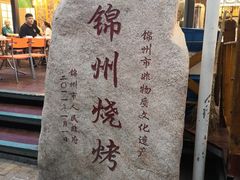 锦州市非物质文化遗产
锦州烧烤
锦州市人民政府
二〇一一年一月一日